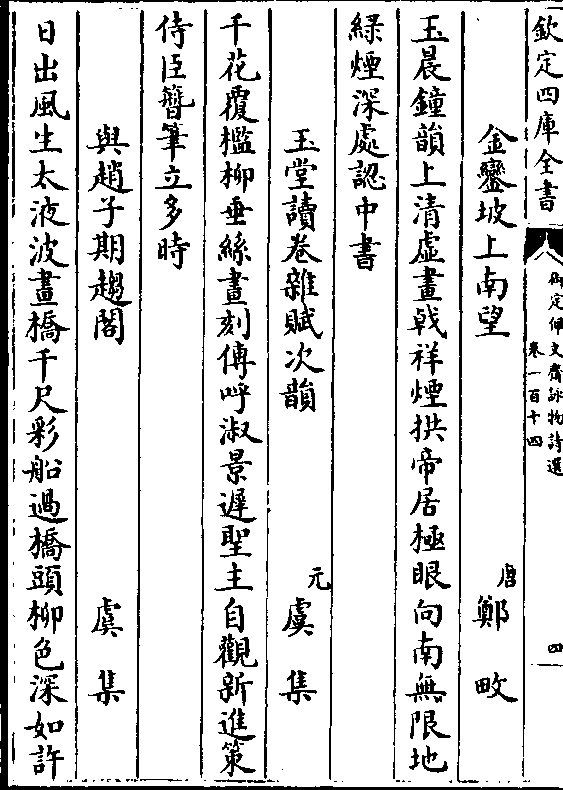 欽定四庫全書
御定佩文齋詠物詩選
卷一百十四
四
金鑾坡上南望
唐 鄭畋
玉晨鐘韻上清虛畫戟祥煙拱帝居極眼向南無限地
緑煙深處認中書
玉堂讀卷雜賦次韻
元 虞集
千花覆檻柳垂絲晝刻傳呼淑景遲聖主自觀新進策
侍臣簪筆立多時
與趙子期趨閣
虞集
日出風生太液波畫橋千尺彩船過橋頭柳色深如許